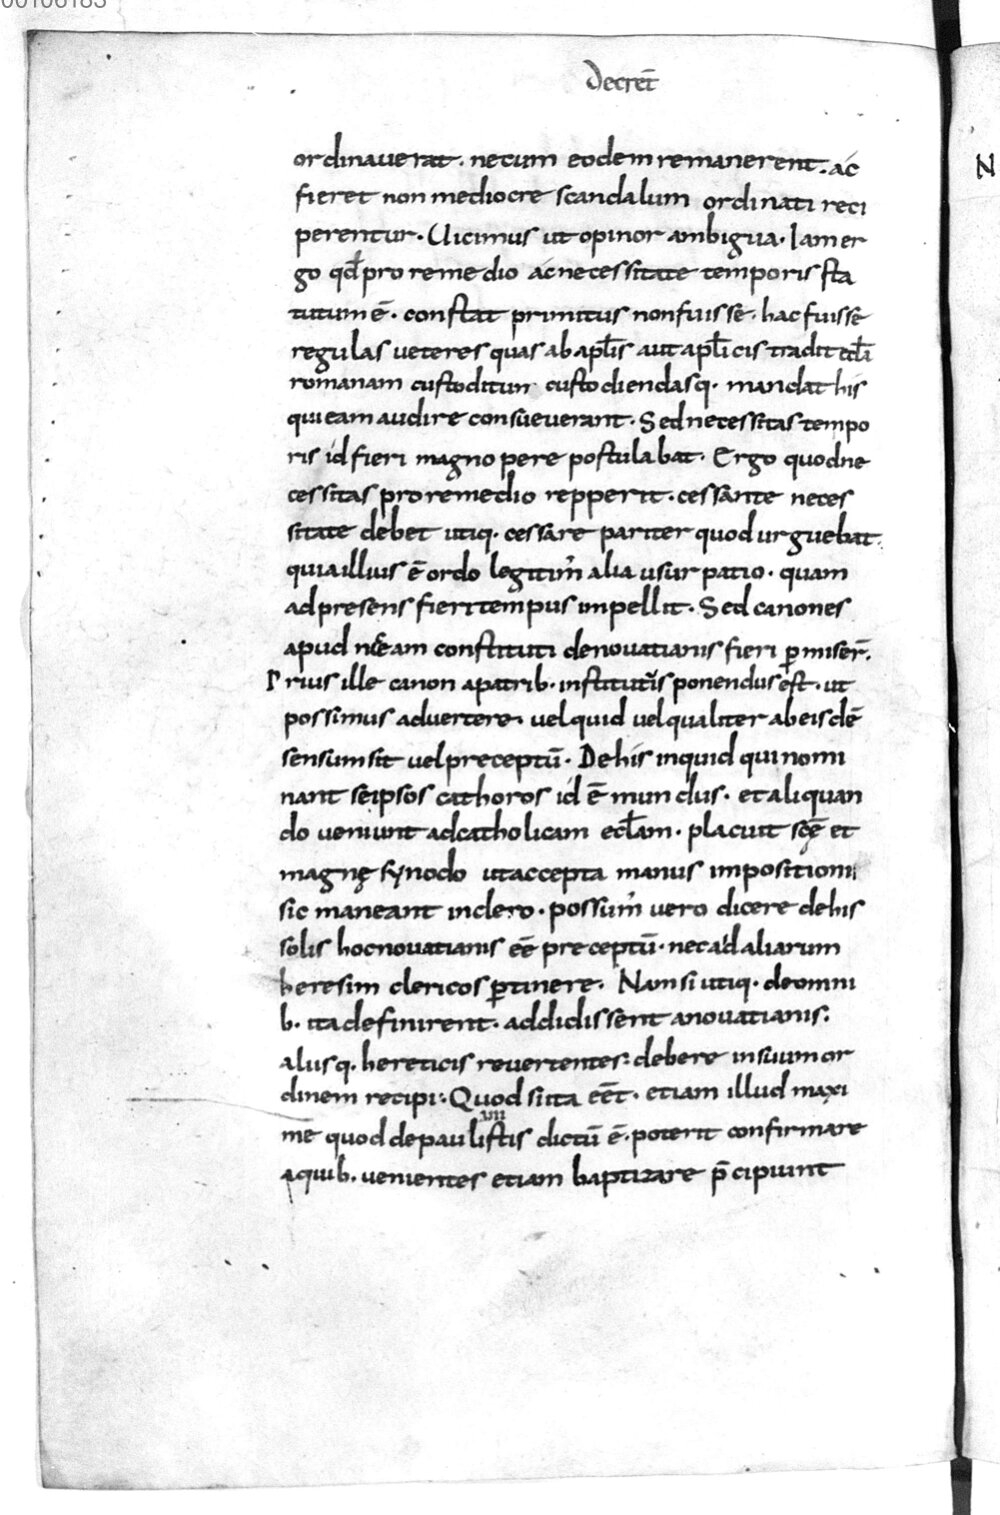 00106183
Decret̄
ordinauerat. necum eodem remanerent. ac
fieret non mediocre scandalum ordinati reci
perentur. Uicimus ut opinor ambigua. Iam er
go qđ pro remedio ac necessitate temporis sta
tutum ē. constat primitus non fuisse. hac fuisse
regulas ueteres quas ab apłis aut apłicis tradit ecła
romanam custoditur custodiendasq. mandat his
qui eam audire consueuerant. Sed necessitas tempo
ris id fieri magnopere postulabat. Ergo quod ne
cessitas pro remedio repperit. cessante neces
sitate debet utiq. cessare pariter quod urguebat.
quia illius ē ordo legitim̓ alia usurpatio. quam
ad presens fieri tempus impellit. Sed canones
apud niceam constituti de nouatianis fieri ꝑmiser̄.
Prius ille canon a patrib. institutis ponendus est. ut
possimus aduertere. uel quid uel qualiter ab eisdē
sensum sit uel preceptū. De his inquid qui nomi
nant seipsos cathoros id ē mundus. et aliquan
do ueniunt ad catholicam ecłam. placuit scę̄ et
magnę synodo ut accepta manus impositioni
sic maneant in clero. possum̓ uero dicere de his
solis hoc nouatianis eē preceptū. nec ad aliarum
heresim clericos ꝑtinere. Nam si utiq. de omni
b. ita definirent. addidissent a nouatianis.
aliisq. hereticis reuertentes. debere in suum or
dinem recipi. Quod si ita eēt. etiam illud maxi
mē quod de paulistis dictū ē. poterit confirmare
a quib. uenientes etiam baptizare p̄cipiunt
N